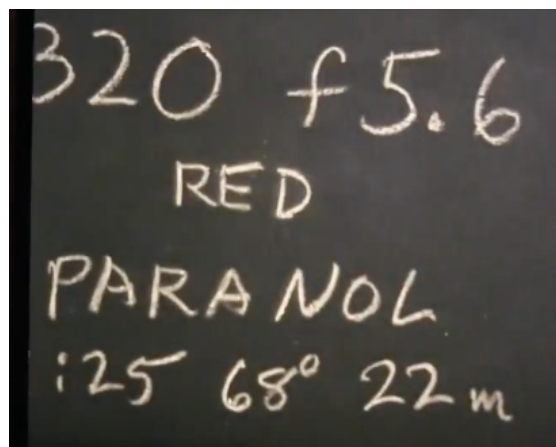 320 f5.6
RED
PARANOL
:25 68° 22m